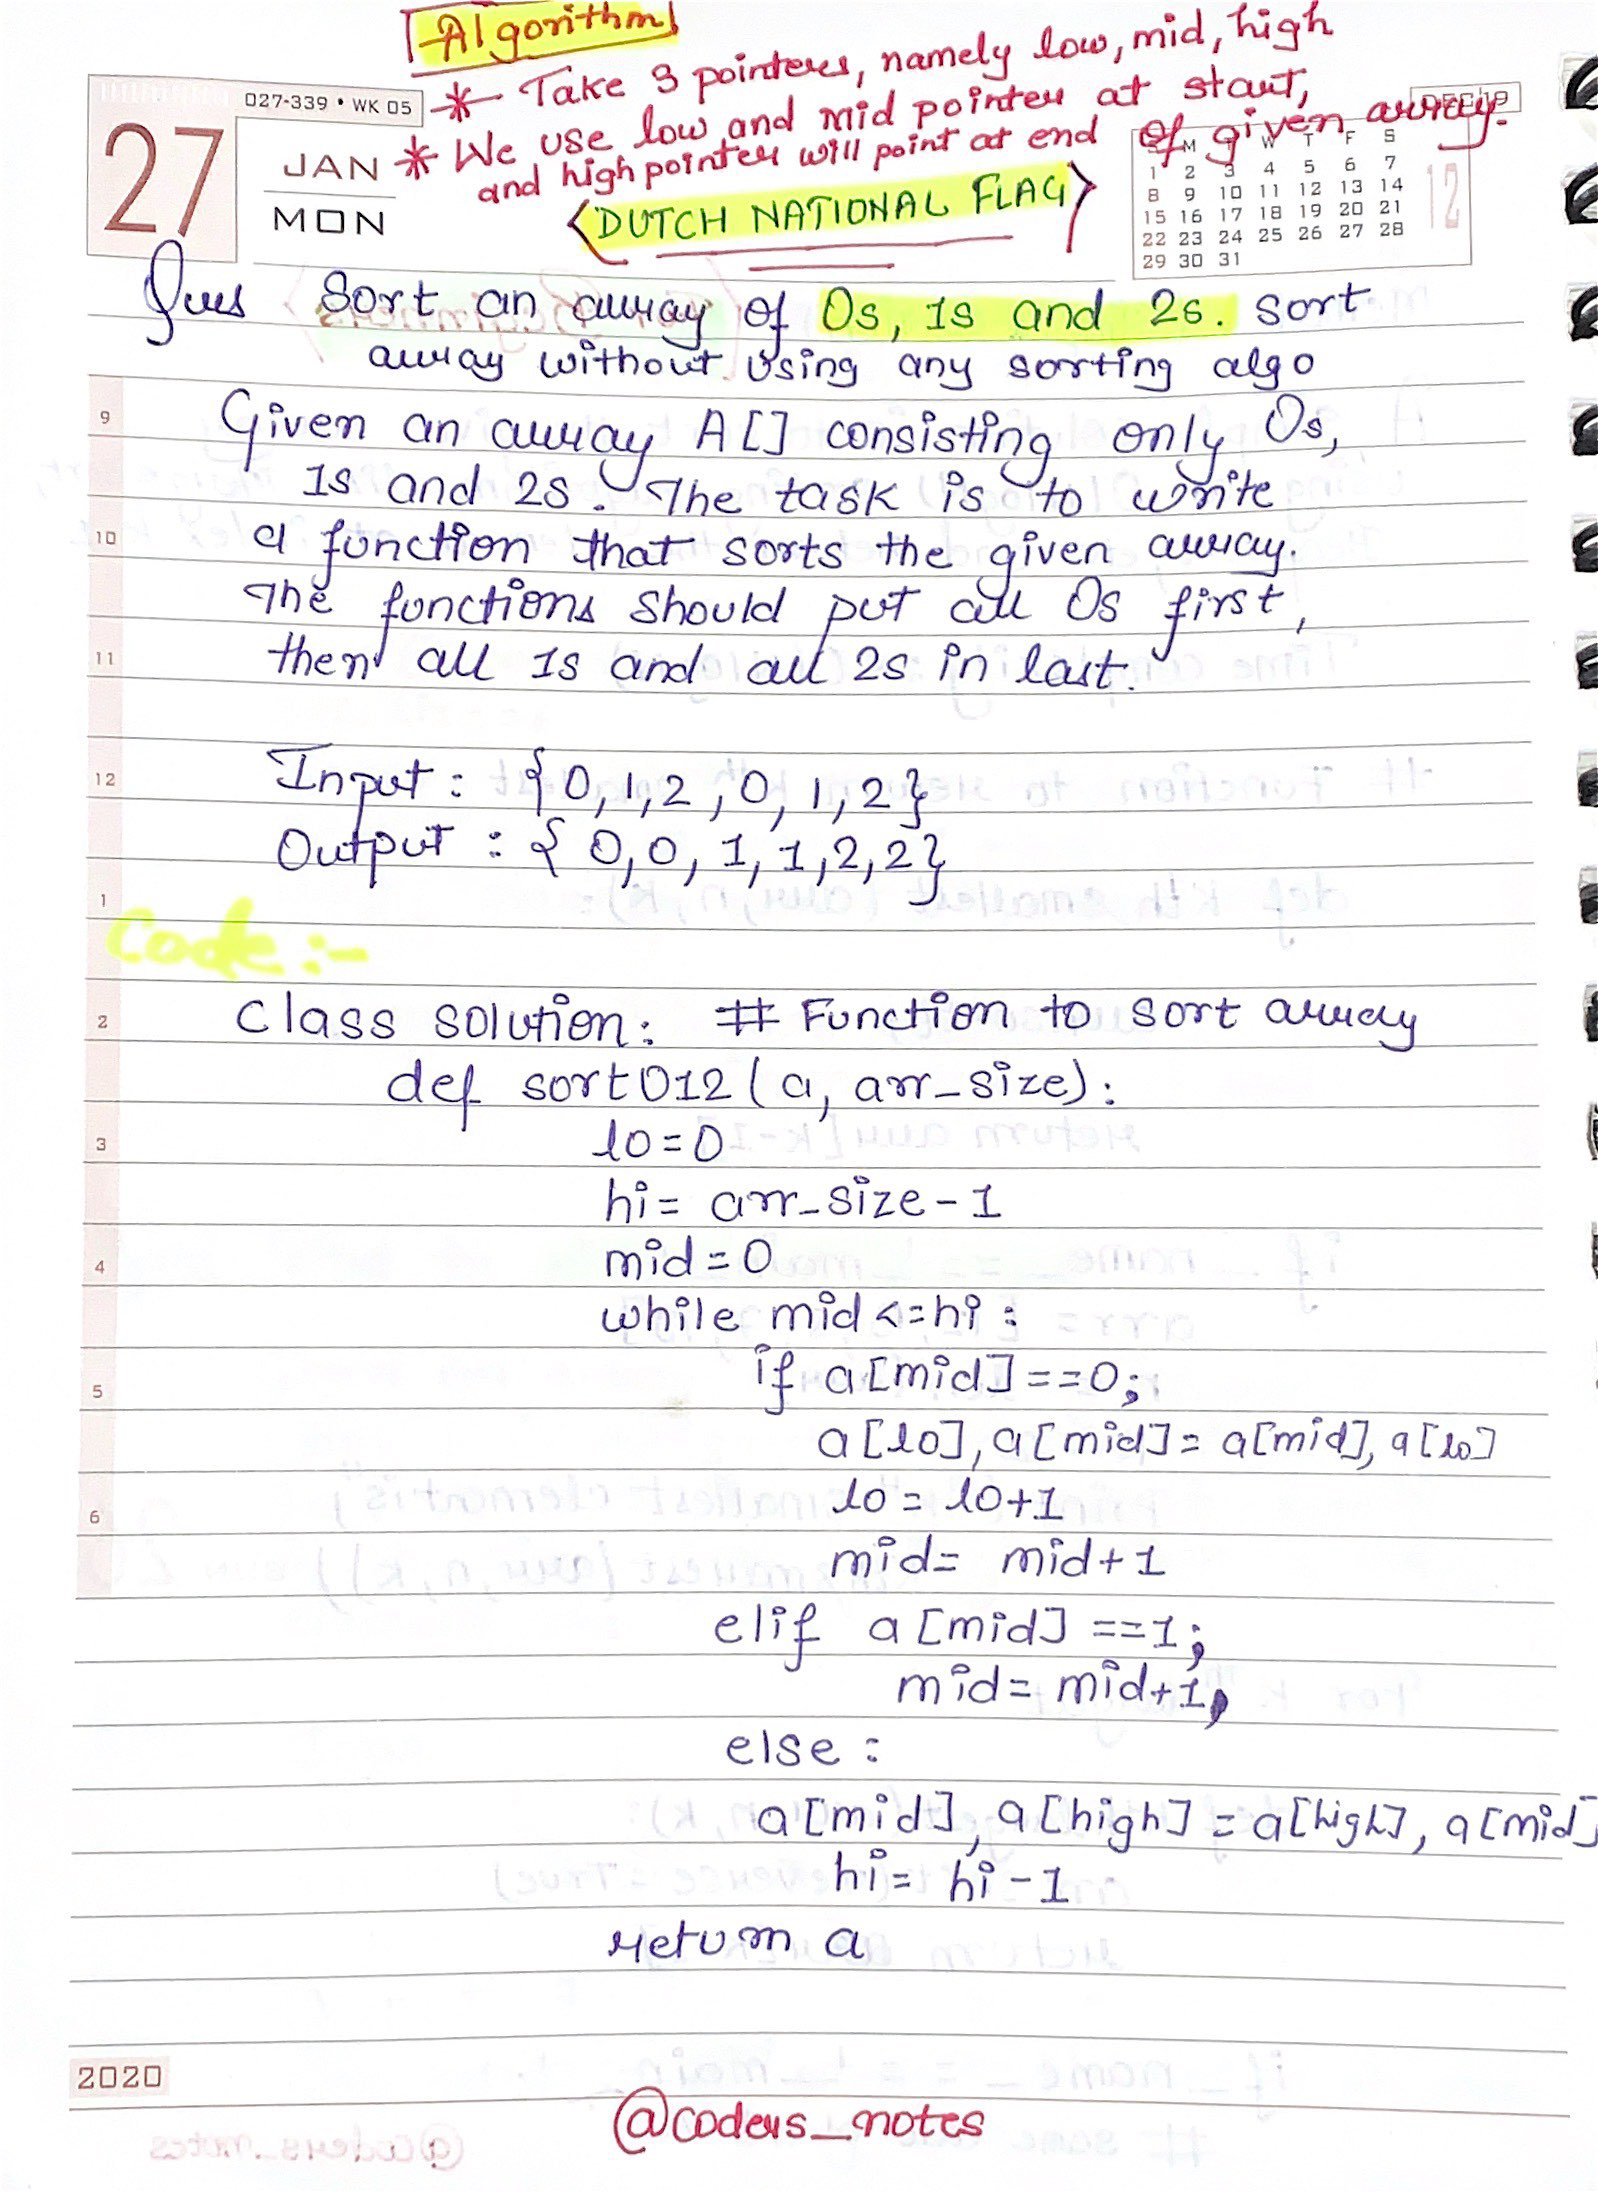 Algorithm
* Take 3 pointers, namely low, mid, high
027-339 • WK 05
DEC 19
* We use low and mid pointer at start,
and high pointer will point at end of given array.
27
JAN
MON
M T W T F S
1 2 3 4 5 6 7
8 9 10 11 12 13 14
15 16 17 18 19 20 21
22 23 24 25 26 27 28
29 30 31
12
DUTCH NATIONAL FLAG
Ques Sort an array of 0s, 1s and 2s. sort
array without using any sorting algo
9
Given an array A[] consisting only 0s,
1s and 2s. The task is to write
10
a function that sorts the given array.
The functions should put all 0s first,
11
then all 1s and all 2s in last.
12
Input : {0,1,2,0,1,2}
Output : {0,0,1,1,2,2}
1
Code:-
2
class solution: # Function to sort array
def sort012(a, arr_size):
3
lo=0
hi= arr_size-1
4
mid=0
while mid<=hi:
if a[mid]==0;
5
a[lo], a[mid]= a[mid], a[lo]
lo= lo+1
6
mid= mid+1
elif a[mid]==1;
mid= mid+1,
else:
a[mid], a[high] = a[high], a[mid]
hi= hi-1
return a
2020
@coders_notes